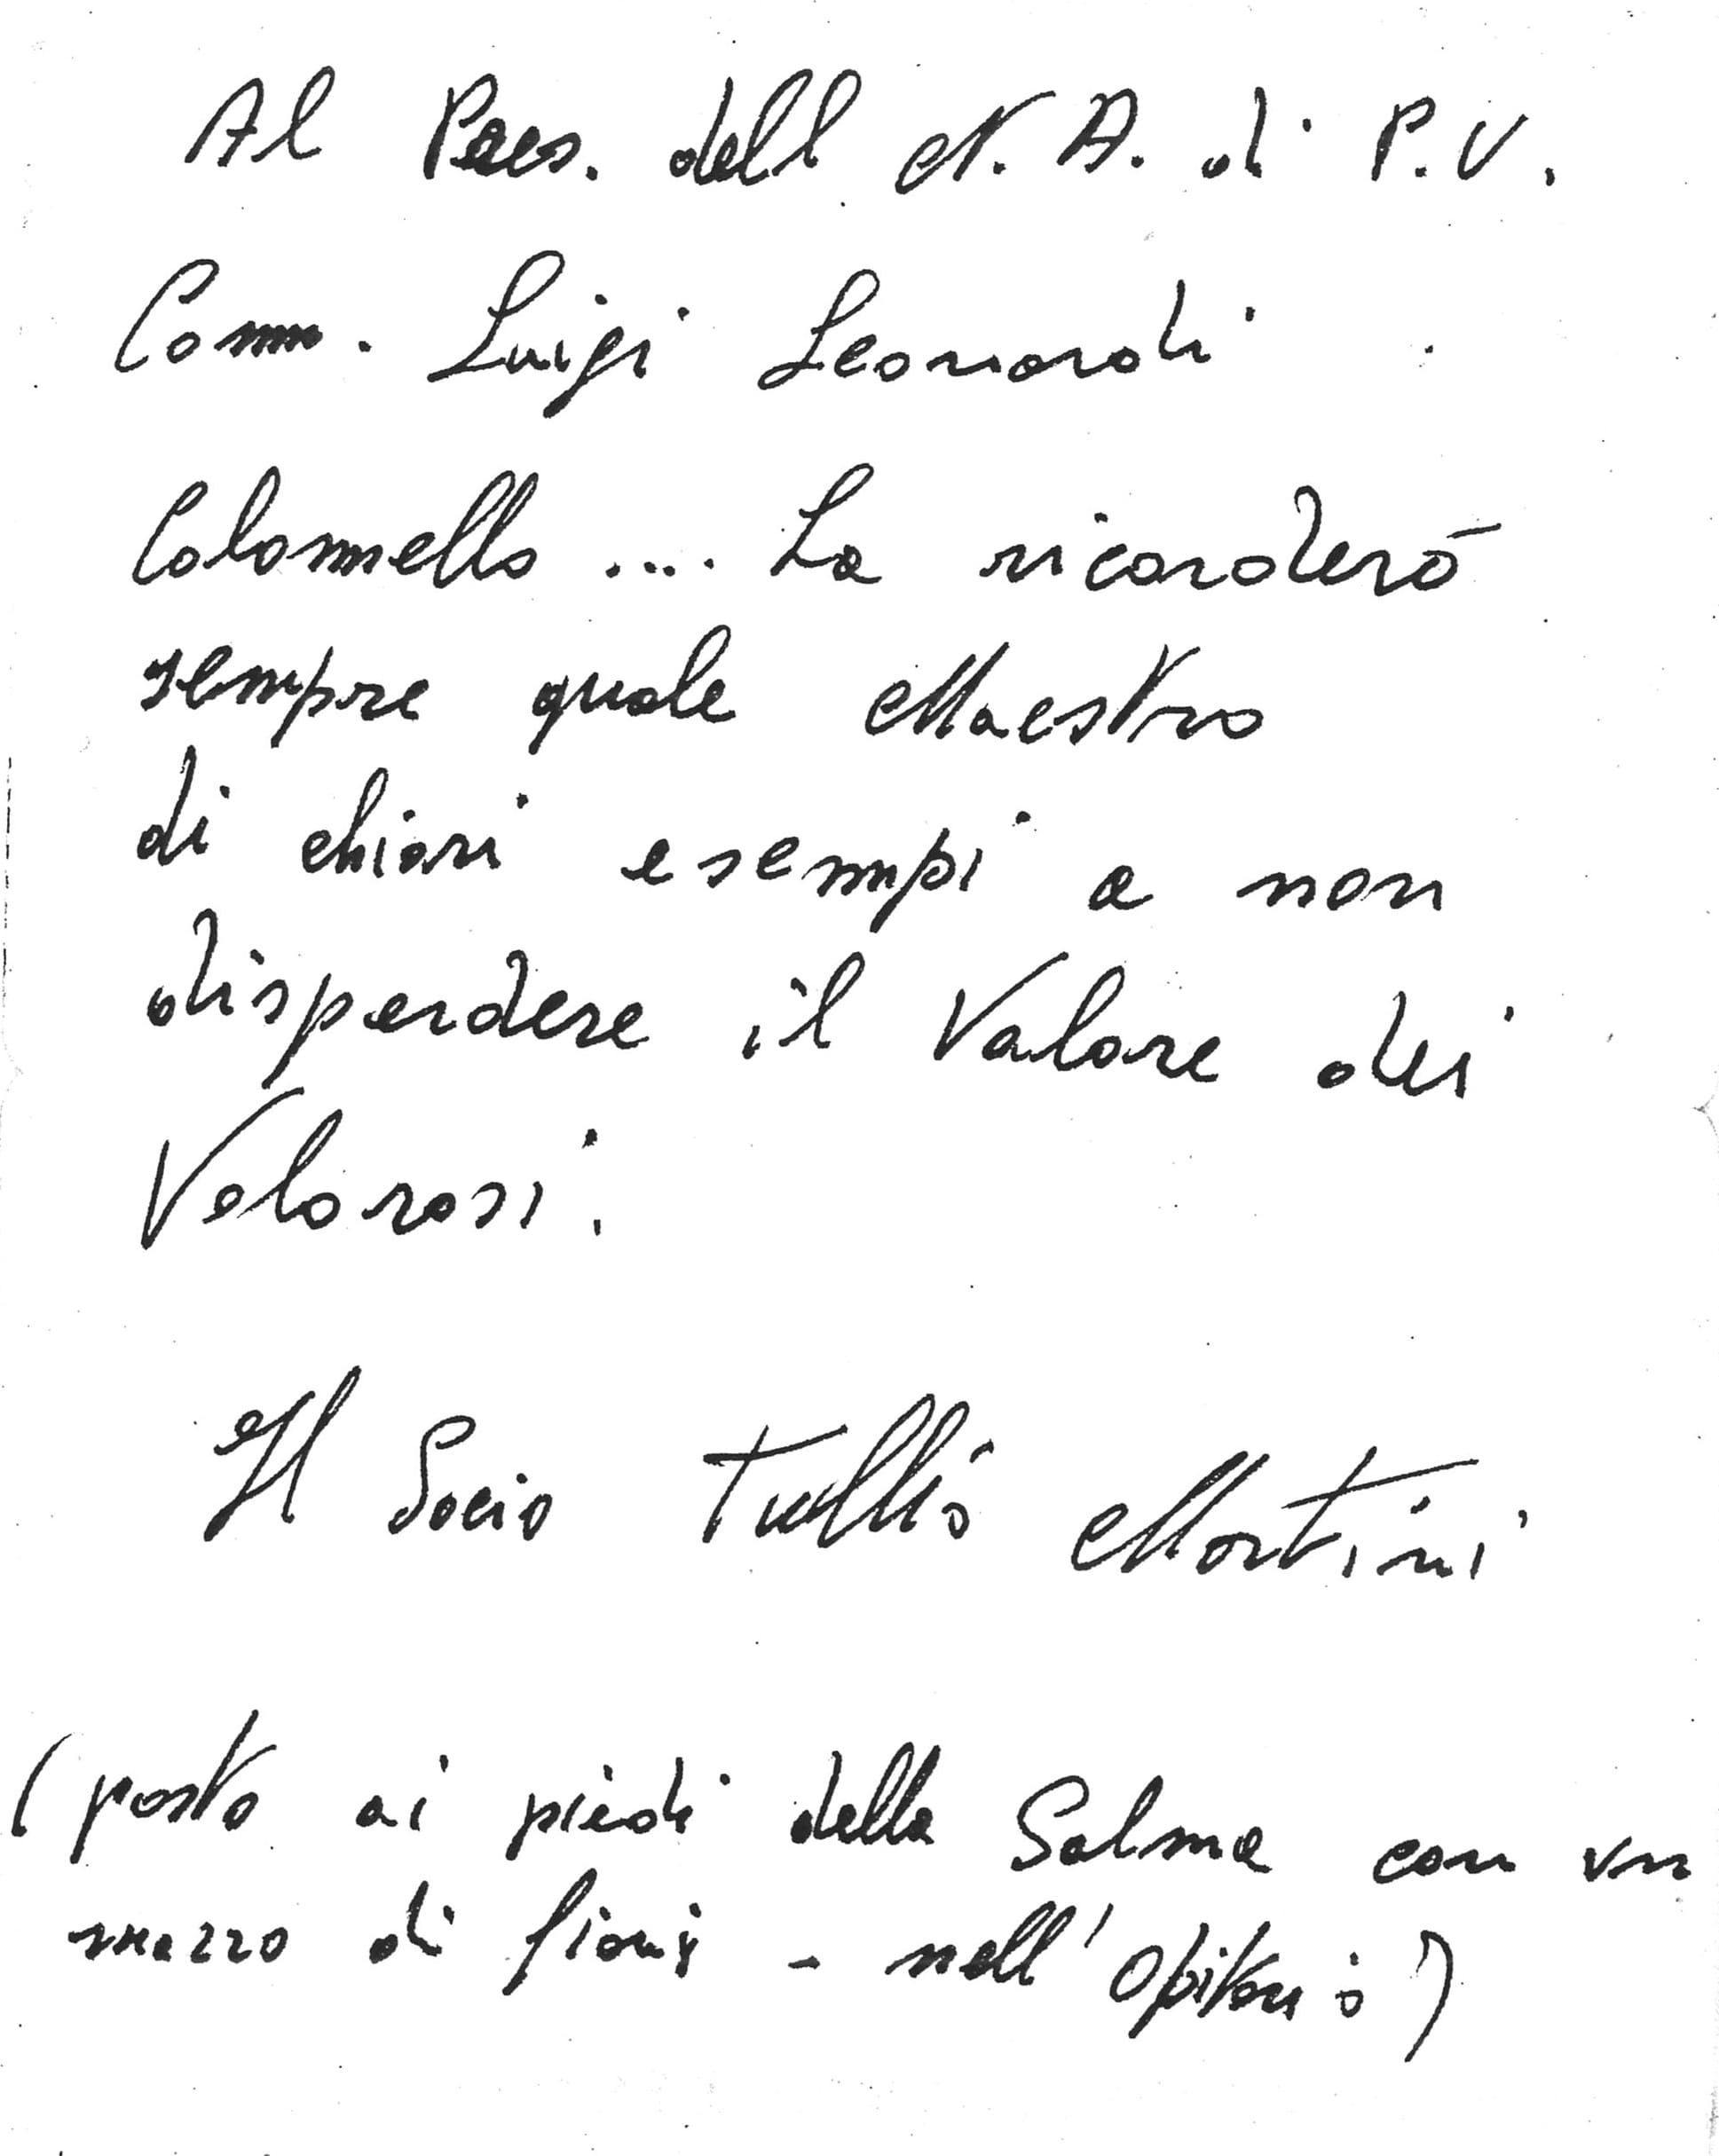 Al Pres. dell N. A. di P. V.
Comm. Luigi Leonardi
Colonnello .... La ricorderò
sempre quale Maestro
di chiari esempi a non
disperdere il Valore dei
Valorosi.
Il Socio Tullio Martini
(posto ai piedi della Salma con un
mazzo di fiori - nell'Obitorio)